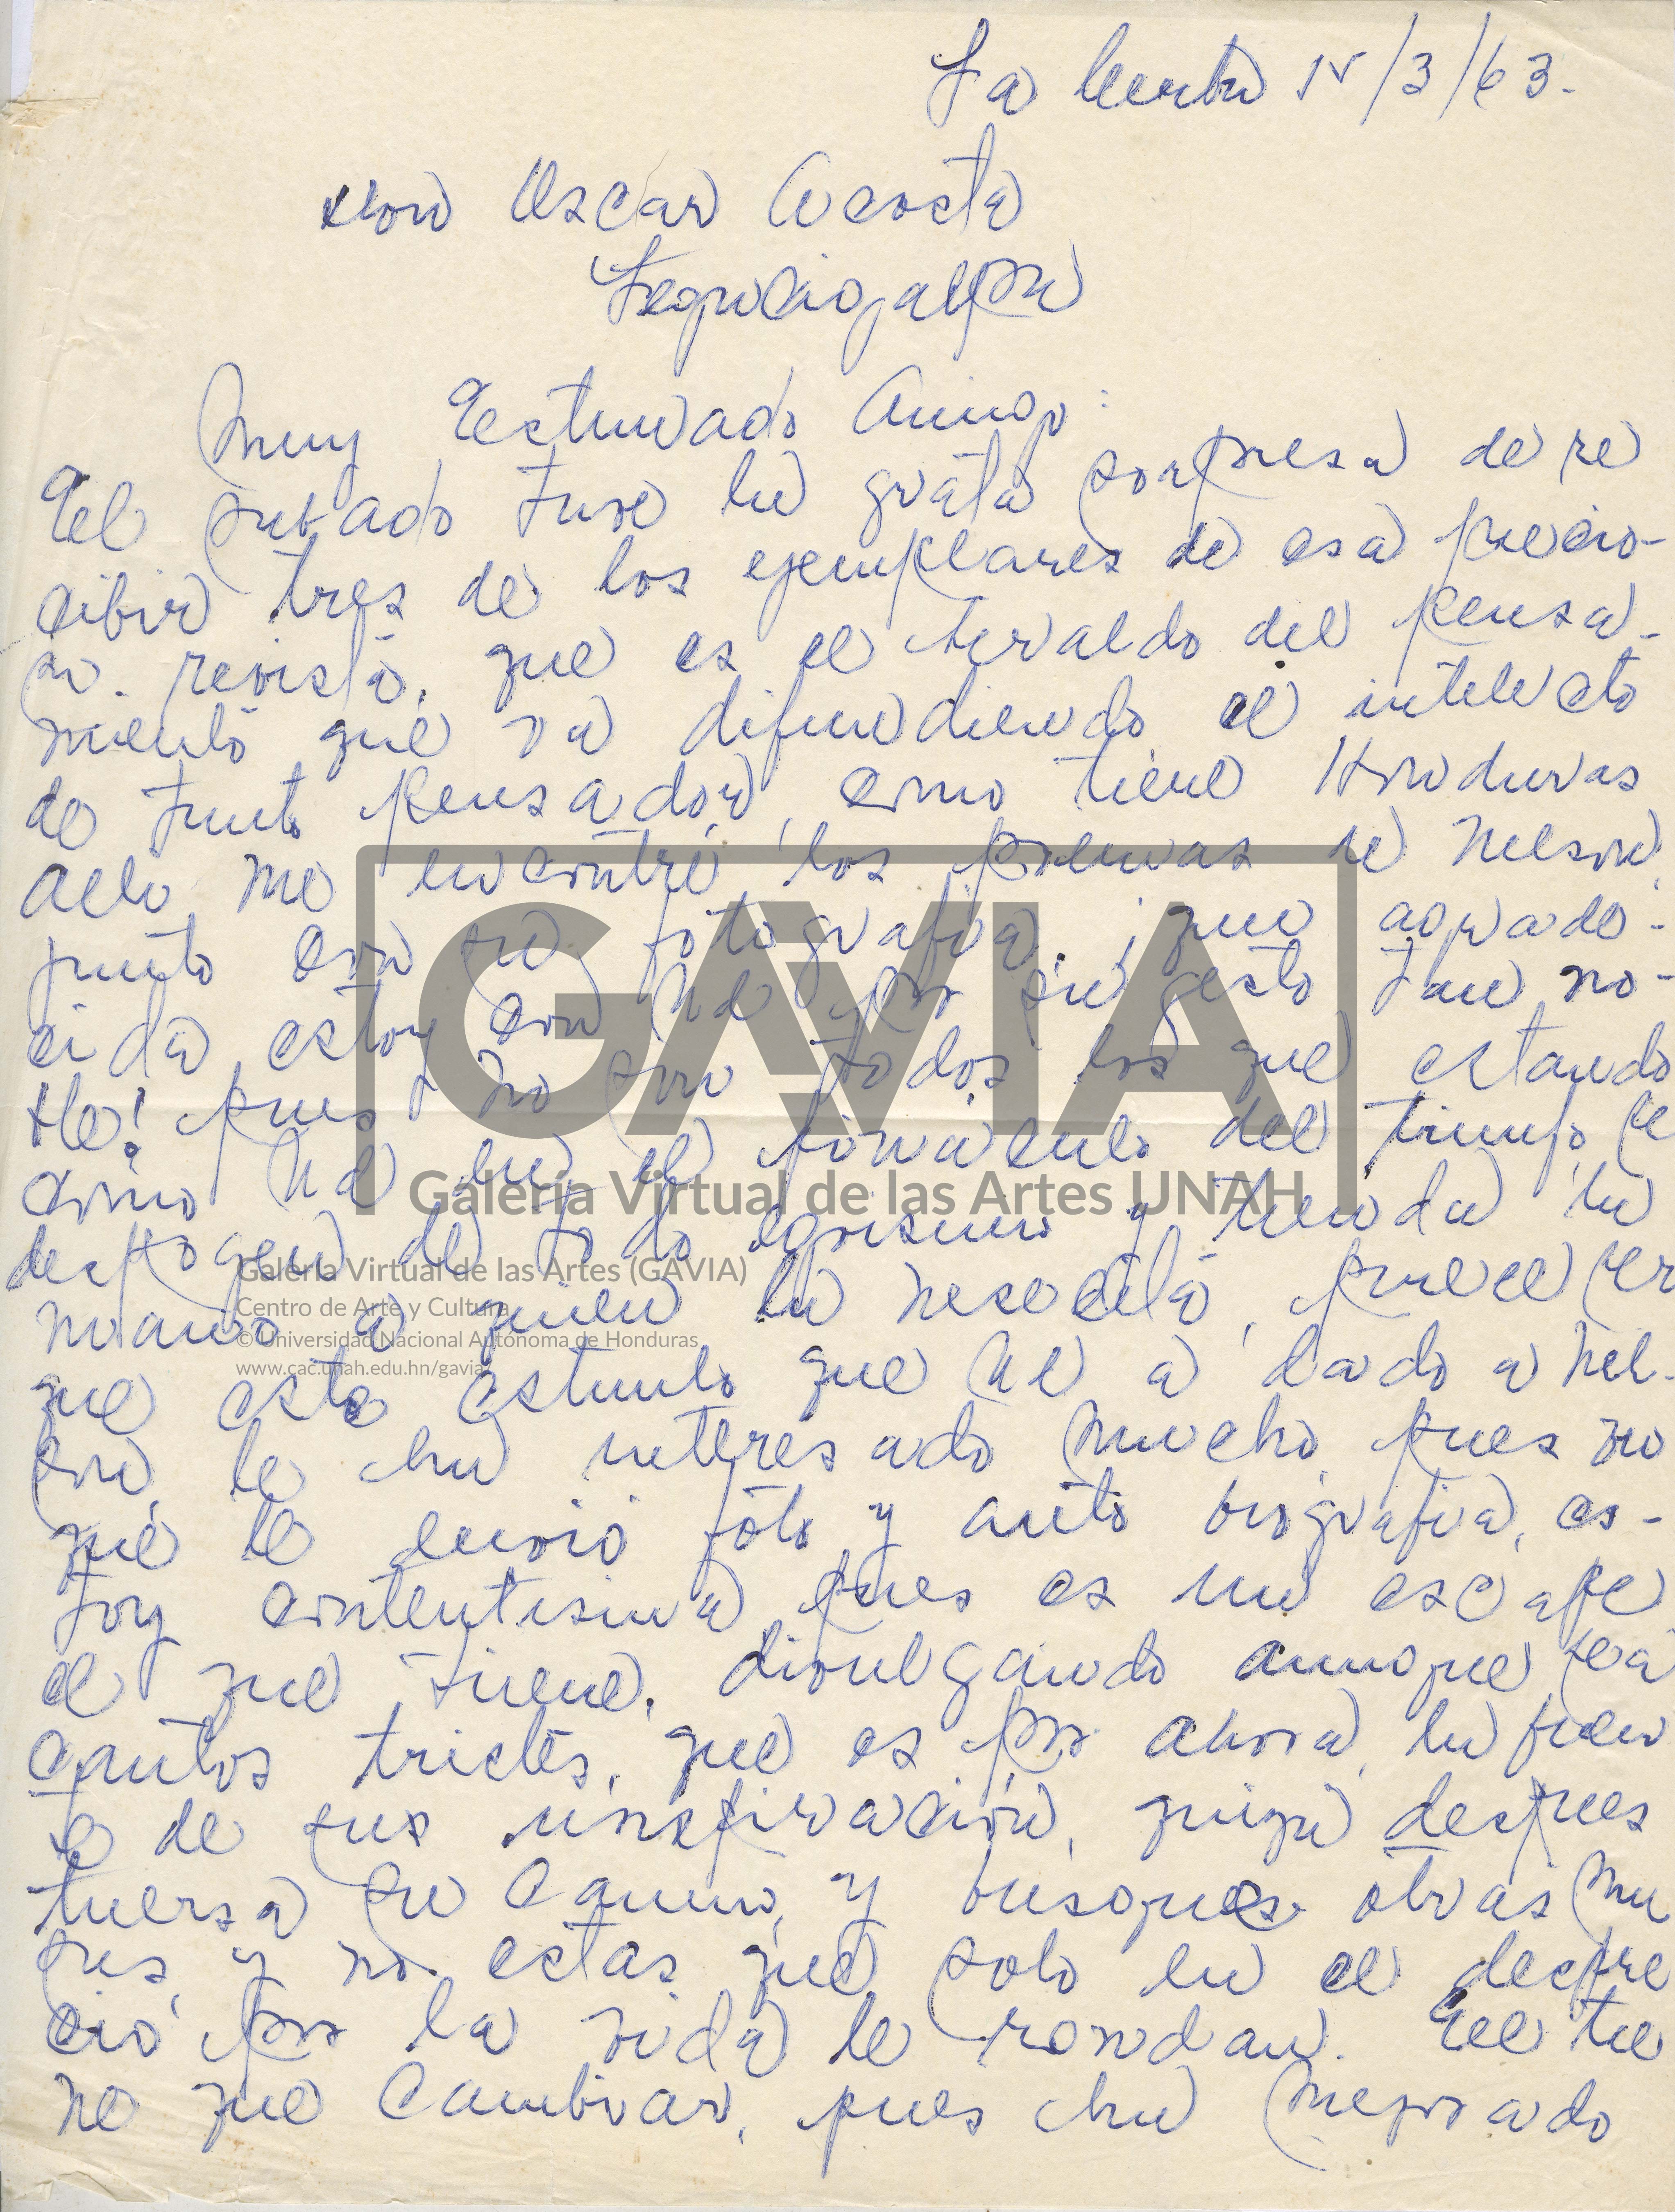 La Ceiba 15/3/63.
Don Oscar Acosta
Tegucigalpa
Muy Estimado Amigo:
El sabado tuve la grata sorpresa de re
cibir tres de los ejemplares de esa precio-
sa revista, que es el heraldo del pensa-
miento que va difundiendo el intelecto
de tanto pensador, como tiene Honduras
me encontré los poemas de Nelson,
junto con su fotografia. ¡que agrade-
cida estoy con Ud por su gesto tan no-
ble! pues no son todos los que estando
como Ud en el pinaculo del triunfo, se
despogen de todo egoismo y tienda la
mano a quien la nesecita, parece ser
que este estimulo que Ud a dado a Nel-
son, le ha interesado mucho, pues no
que le envio foto y auto biografia, es-
toy contentisima, pues es un escape
el que tiene, divulgando aunque sea
cantos tristes, que es por ahora, la fuen
te de sus inspiración, quiza despues
tuersa su camino, y busque otras mu
sas, y no estas que solo en el despre
cio por la vida le rondan. El tie
ne que cambiar, pues ha mejorado
GAVIA
Galería Virtual de las Artes UNAH
Galería Virtual de las Artes (GAVIA)
Centro de Arte y Cultura
© Universidad Nacional Autónoma de Honduras
www.cac.unah.edu.hn/gavia/